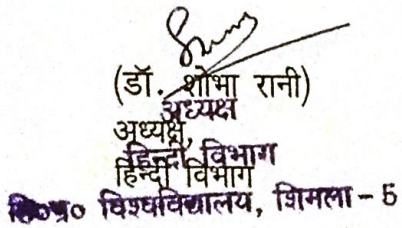 (डॉ. शोभा रानी)
अध्यक्ष
अध्यक्ष,
हिन्दी विभाग
हिन्दी विभाग
हि०प्र० विश्वविद्यालय, शिमला - 5